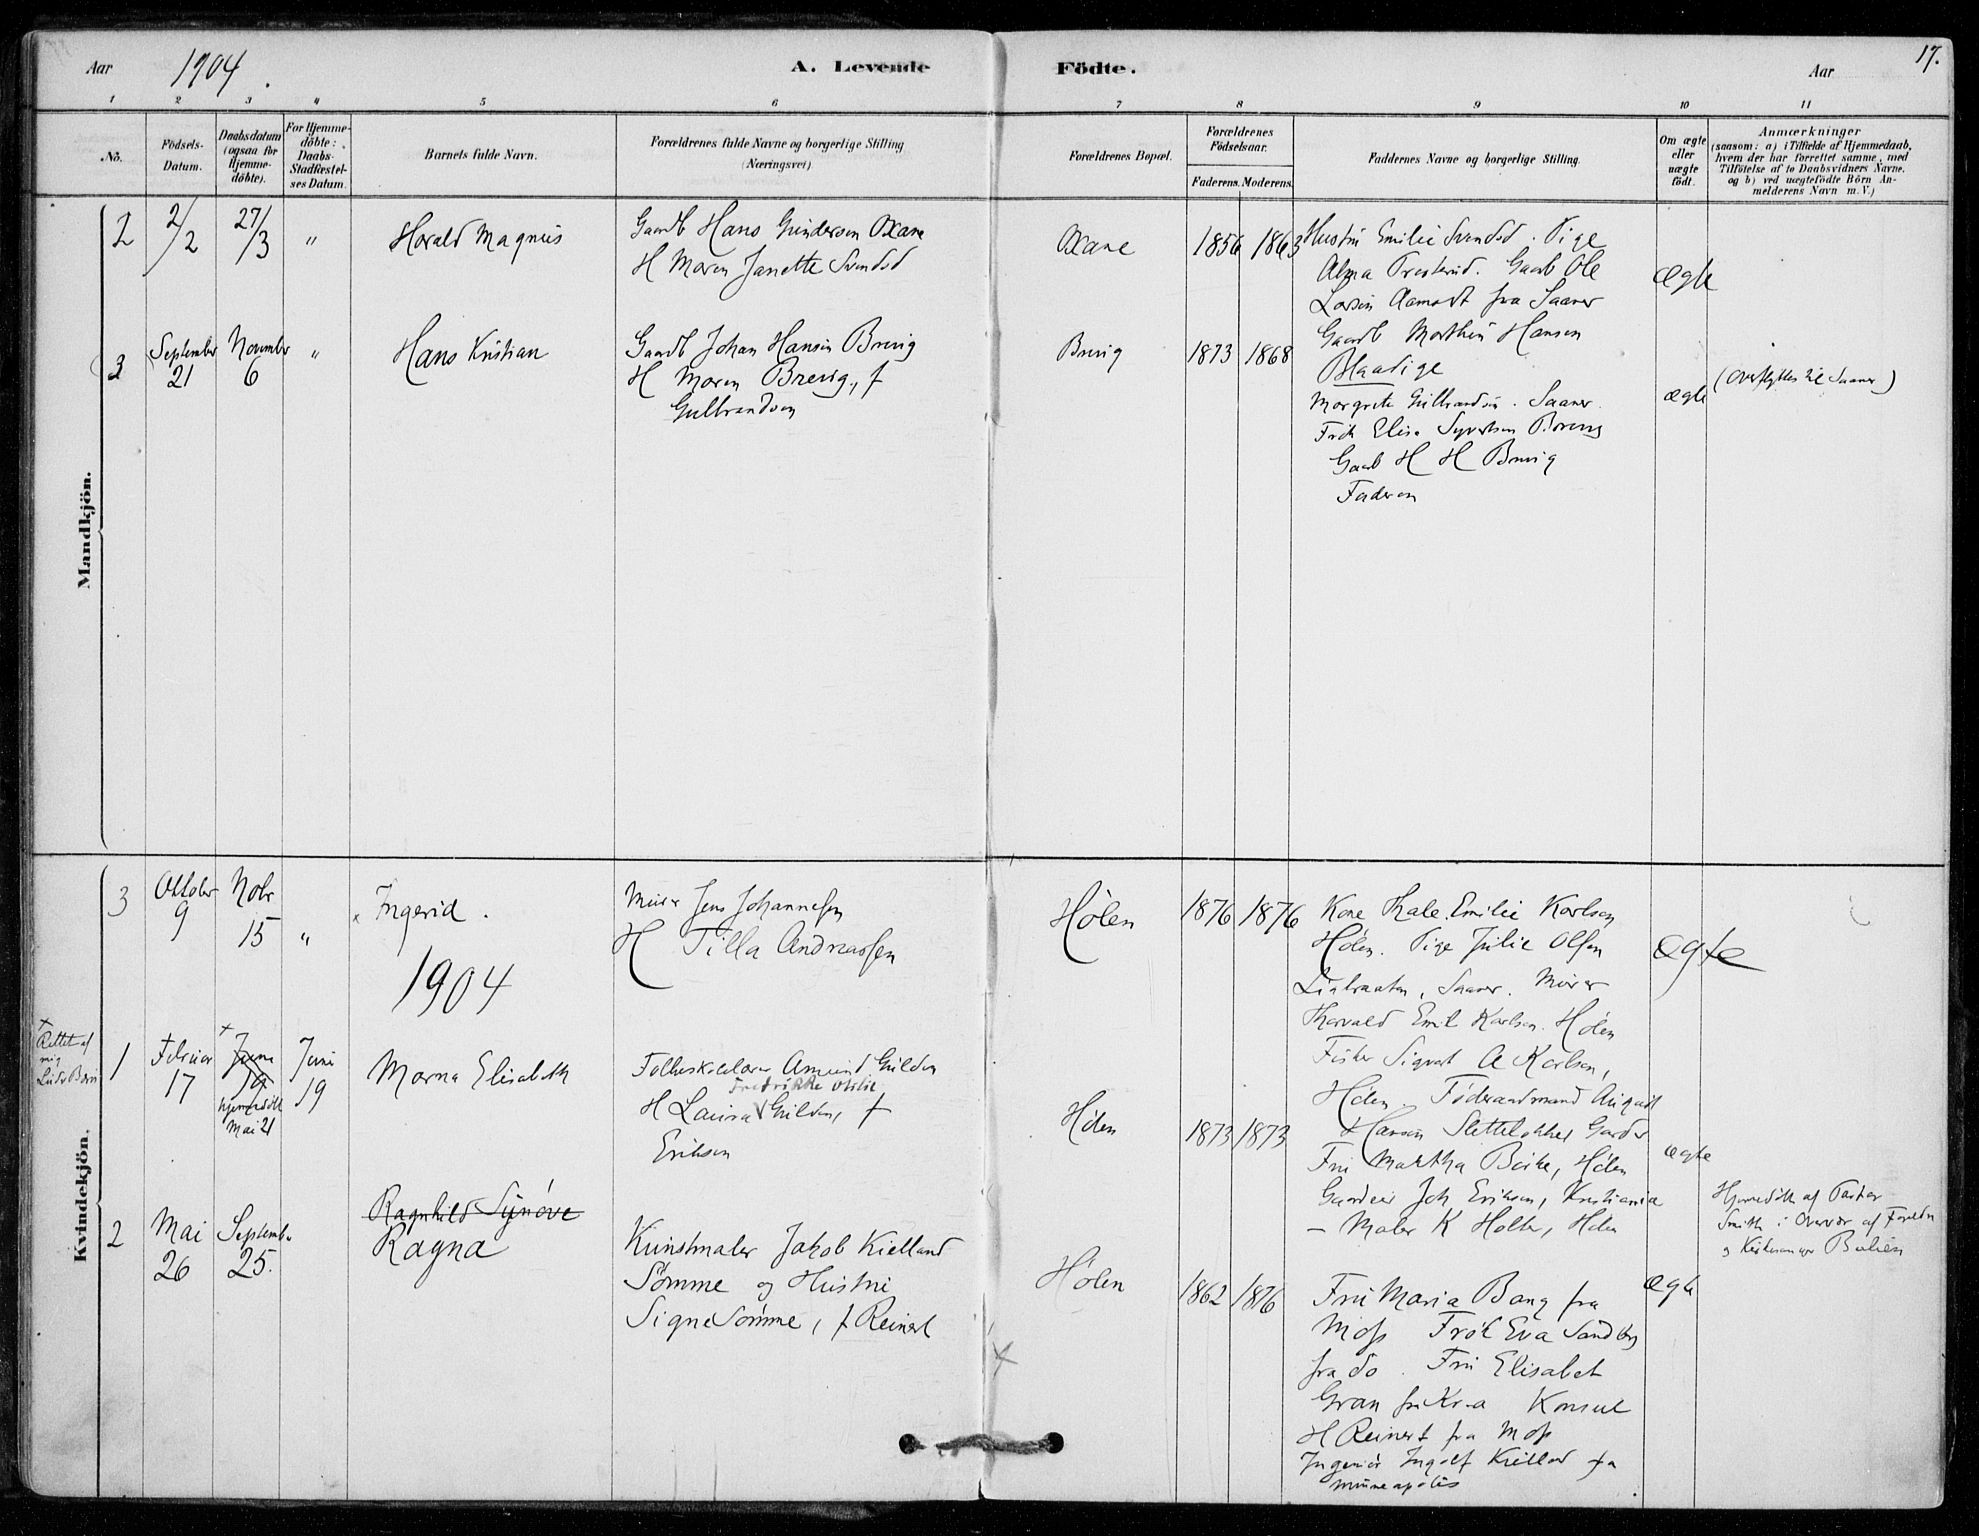 Aar 1904. A. Levende Födte. Aar 17.
1 2 3 4 5 6 7 8 9 10 11
No.
Födsels-Datum.
Daabsdatum (ogsaa for Hjemme-döbte).
For Hjemme-döbte: Daabs-Stadfæstel-ses Datum.
Barnets fulde Navn.
Forældrenes fulde Navne og borgerlige Stilling (Næringsvei)
Forældrenes Bopæl.
Forældrenes Födselsaar.
Faderens. Moderens.
Faddernes Navne og borgerlige Stilling.
Om ægte eller uægte födt.
Anmærkninger
(saasom: a) i Tilfælde af Hjemmedaab,
hvem der har forrettet samme, med
Tilföielse af to Daabsvidners Navne.
og b) ved uægtefödte Börn An-
melderens Navn m. V.)
Mandkjön.
2 2/2 27/3 " Harald Magnus
Gaardb Hans Gundersen Oxane
H Maren Janette Svendsd
Oxane 1856 1863
Hustru Emilie Svendsd. Pige
Alma Gaardb Ole
Larsen Aamodt fra Saaner
ægte
Gaardb Marthin Hansen
3 September 21 November 6 " Hans Kristian
Gaardb Johan Hansen Brevig
H Maren Brevig, f
Gulbrandsen
Brevig 1873 1868
Margrete Gulbrandsen. Saaner.
Frök Elise Syvertsen Brevig
Gaardb H H Brevig
Faderen
ægte
(Overflyttes til Saaner)
Kvindekjön.
3 Oktober 9 Nobr 15 " x Ingerid.
Murer Jens Johannessen
H Tilla Andreassen
Hølen 1876 1876
Kone Thale Emilie Karlsen
Hølen. Pige Julie Olsen
Saaner. Murer
Thorvald Emil Karlsen. Hølen
Fisker Sigvat A Karlsen,
Hølen
ægte
1904
+ Rettet af
mig
1 Februar 17 + Juni 19 hjemmedøbt Mai 21 Juni 19 Marna Elisabeth
Folkeskolelærer Amund Gulden
Fredrikke Otilie
H Laura Gulden, f
Eriksen
Hølen 1873 1873
Føderaadsmand August
Hansen Sletteløkken Garder
Fru Martha Boike, Hølen
Gaardeier Joh Eriksen, Kristiania
— Maler K Holter, Hølen
ægte
Hjemmedøbt af Pastor
Smith i Overvær af Forældre
og Kirkesanger
2 Mai 26 September 25. Ragnhild Synøve
Ragna
Kunstmaler Jakob Kielland
Sømme og Hustru
Signe Sømme, f Reinert
Hølen 1862 1876
Fru Maria Bang fra
Moss Frøk Eva Sandberg
fra do. Fru Elisabet
Gran fra Kr.a Konsul
H Reinert fra Moss
Ingeniør Ingolf Kielland fra
Minneapolis
ægte